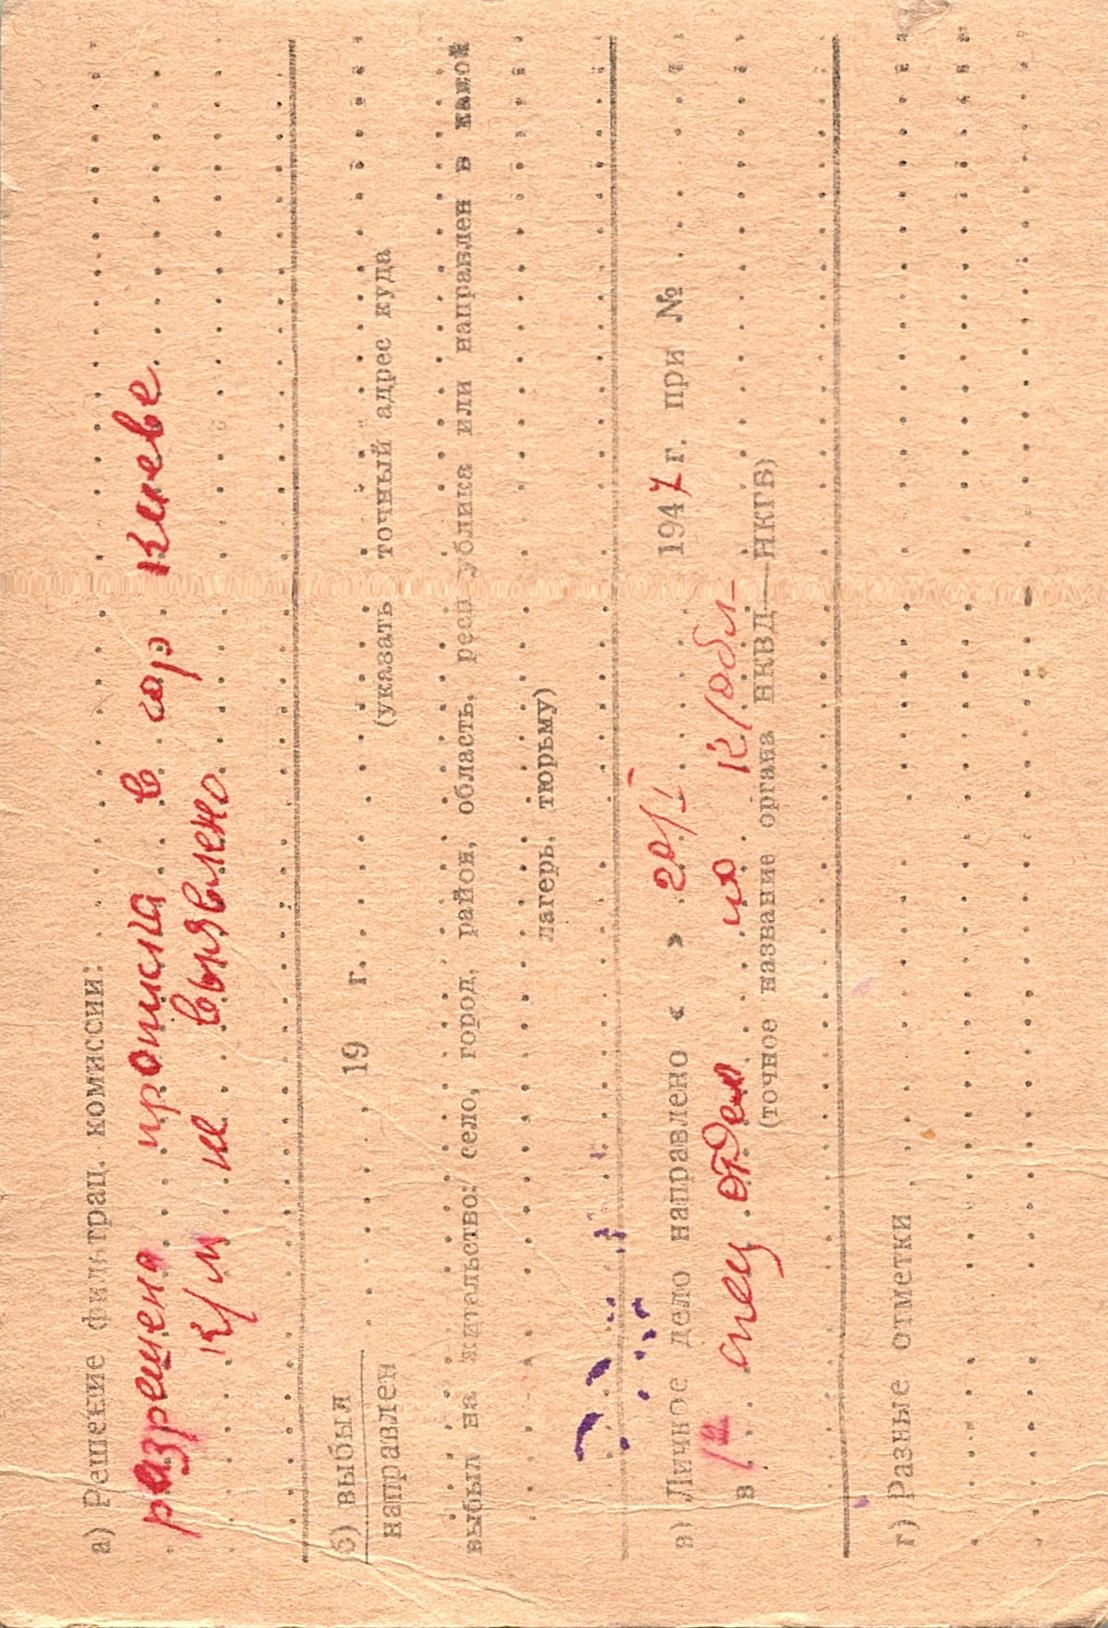 а) Решение фильтрац. комиссии:
разрешена прописка в гор Киеве
К/м не выявлено
б) выбыл 19 г.
направлен (указать точный адрес куда
выбыл на жительство: село, город, район, область, республика или направлен в какой
лагерь, тюрьму)
в) Личное дело направлено « » 20/I 1947 г. при №
в 1й спец отдел по К/обл-
(точное название органа НКВД—НКГБ)
г) Разные отметки